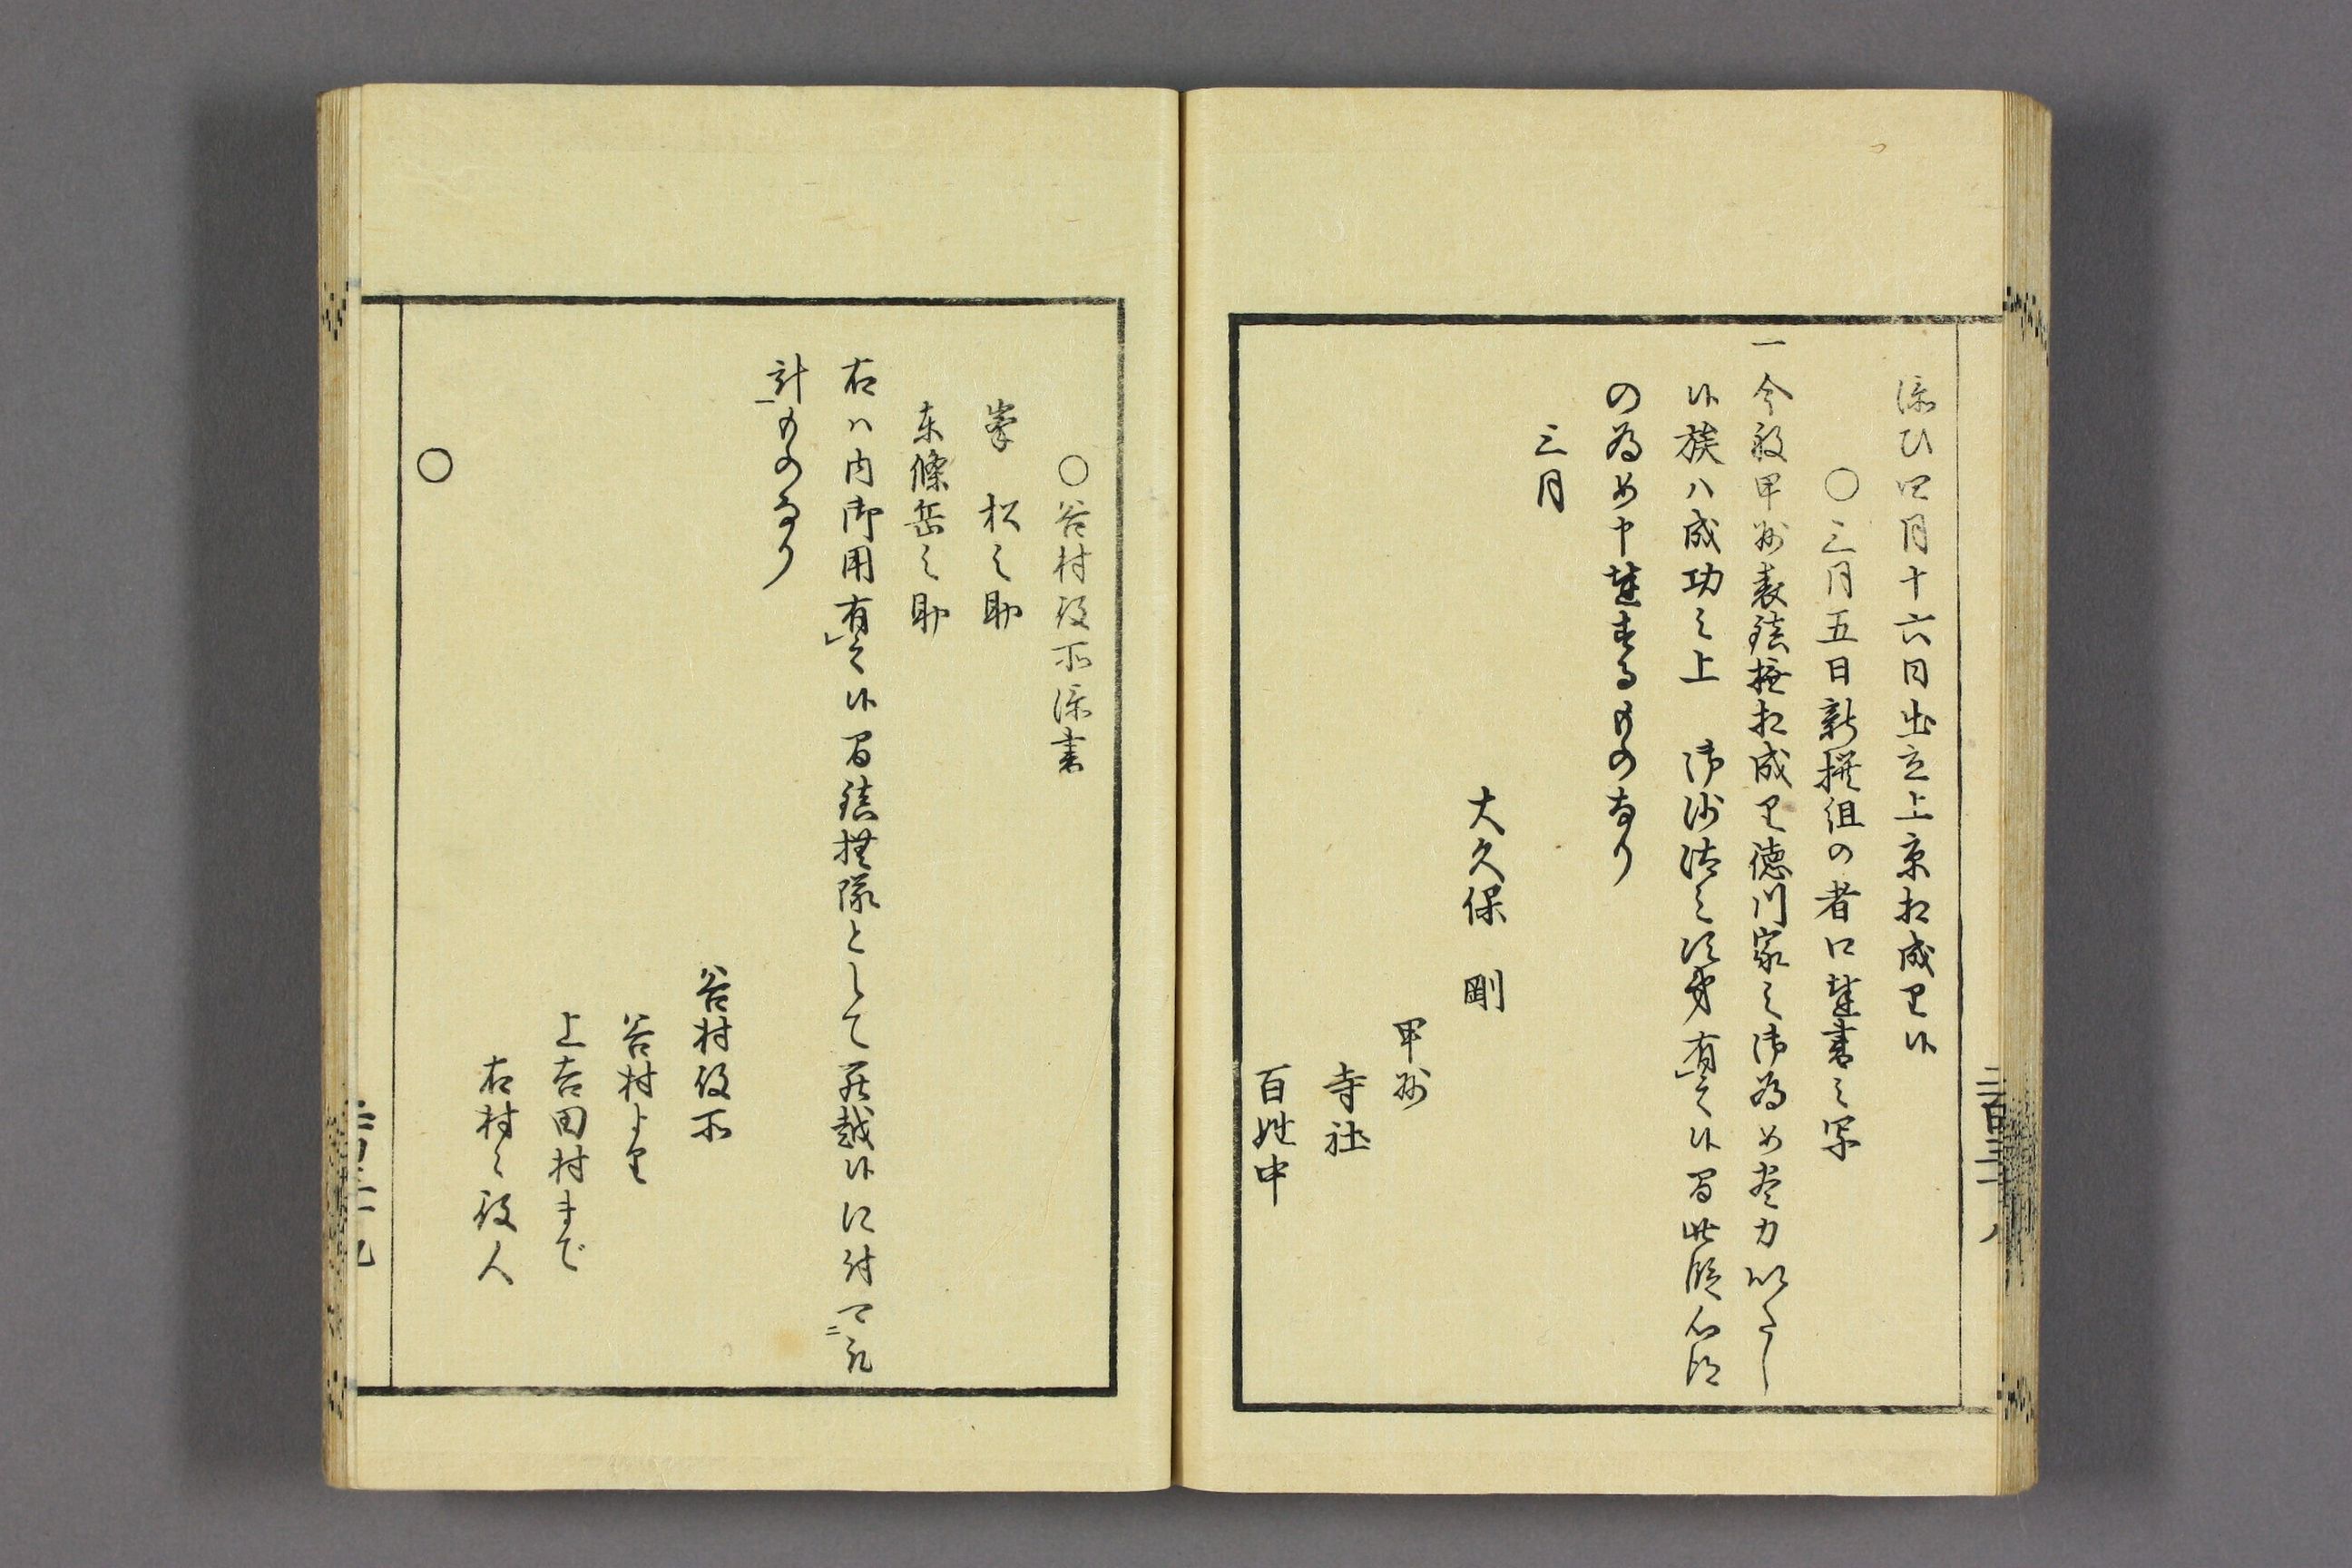 添ひ四月十六日出立上京相成り候
〇三月五日新撰組の者口達書之写
一今般甲州表鎮撫相成り徳川家之御為め尽力いたし
候族ハ成功之上 御沙汰之次第有之候間此段心得
の為め申達するものなり
三月
大久保 剛
甲州
寺社
百姓中
三百三十八
〇谷村役所添書
峯 松之助
東條岳之助
右ハ内御用有之候間鎮撫隊として罷越候に付可取
計ものなり
谷村役所
谷村より
上吉田村まで
右村々役人
〇